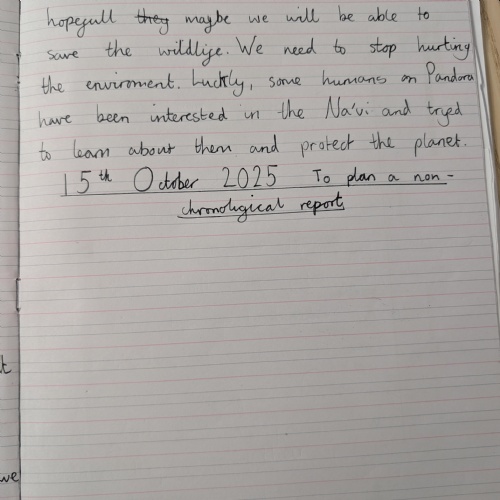 hopefull they maybe we will be able to
save the wildlife. We need to stop hurting
the enviroment. Luckly, some humans on Pandora
have been interested in the Na'vi and tryed
to learn about them and protect the planet.
15th October 2025 To plan a non-
chronological report
t
we